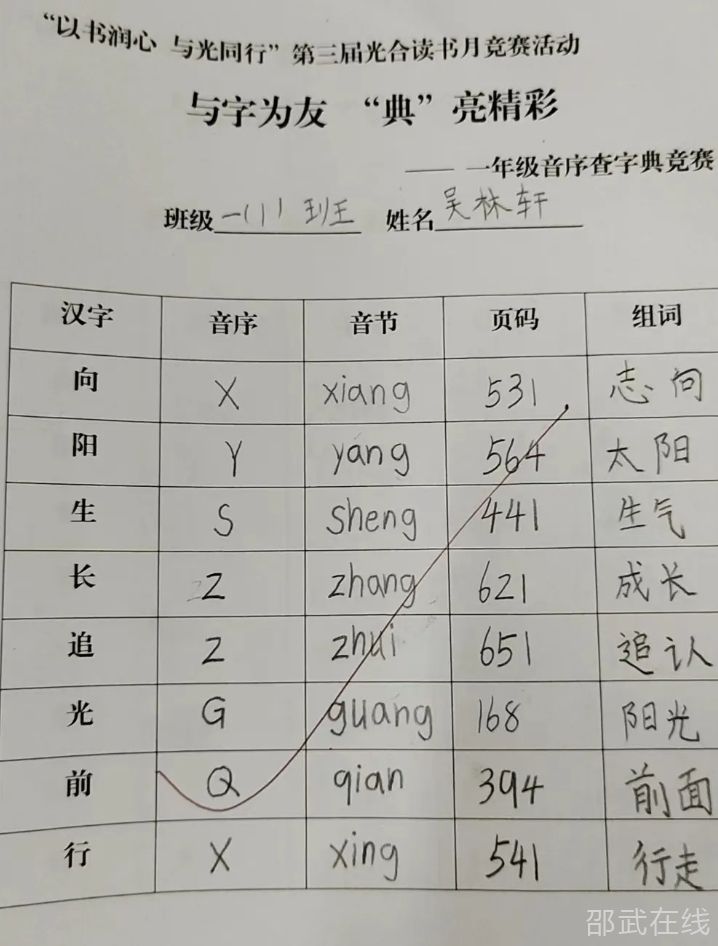 “以书润心 与光同行”第三届光合读书月竞赛活动
与字为友 “典”亮精彩
—— 一年级音序查字典竞赛
班级 一(1)班 姓名 吴林轩
汉字 音序 音节 页码 组词
向 X xiang 531 志向
阳 Y yang 564 太阳
生 S sheng 441 生气
长 Z zhang 621 成长
追 Z zhui 651 追认
光 G guang 168 阳光
前 Q qian 394 前面
行 X xing 541 行走
邵武在线